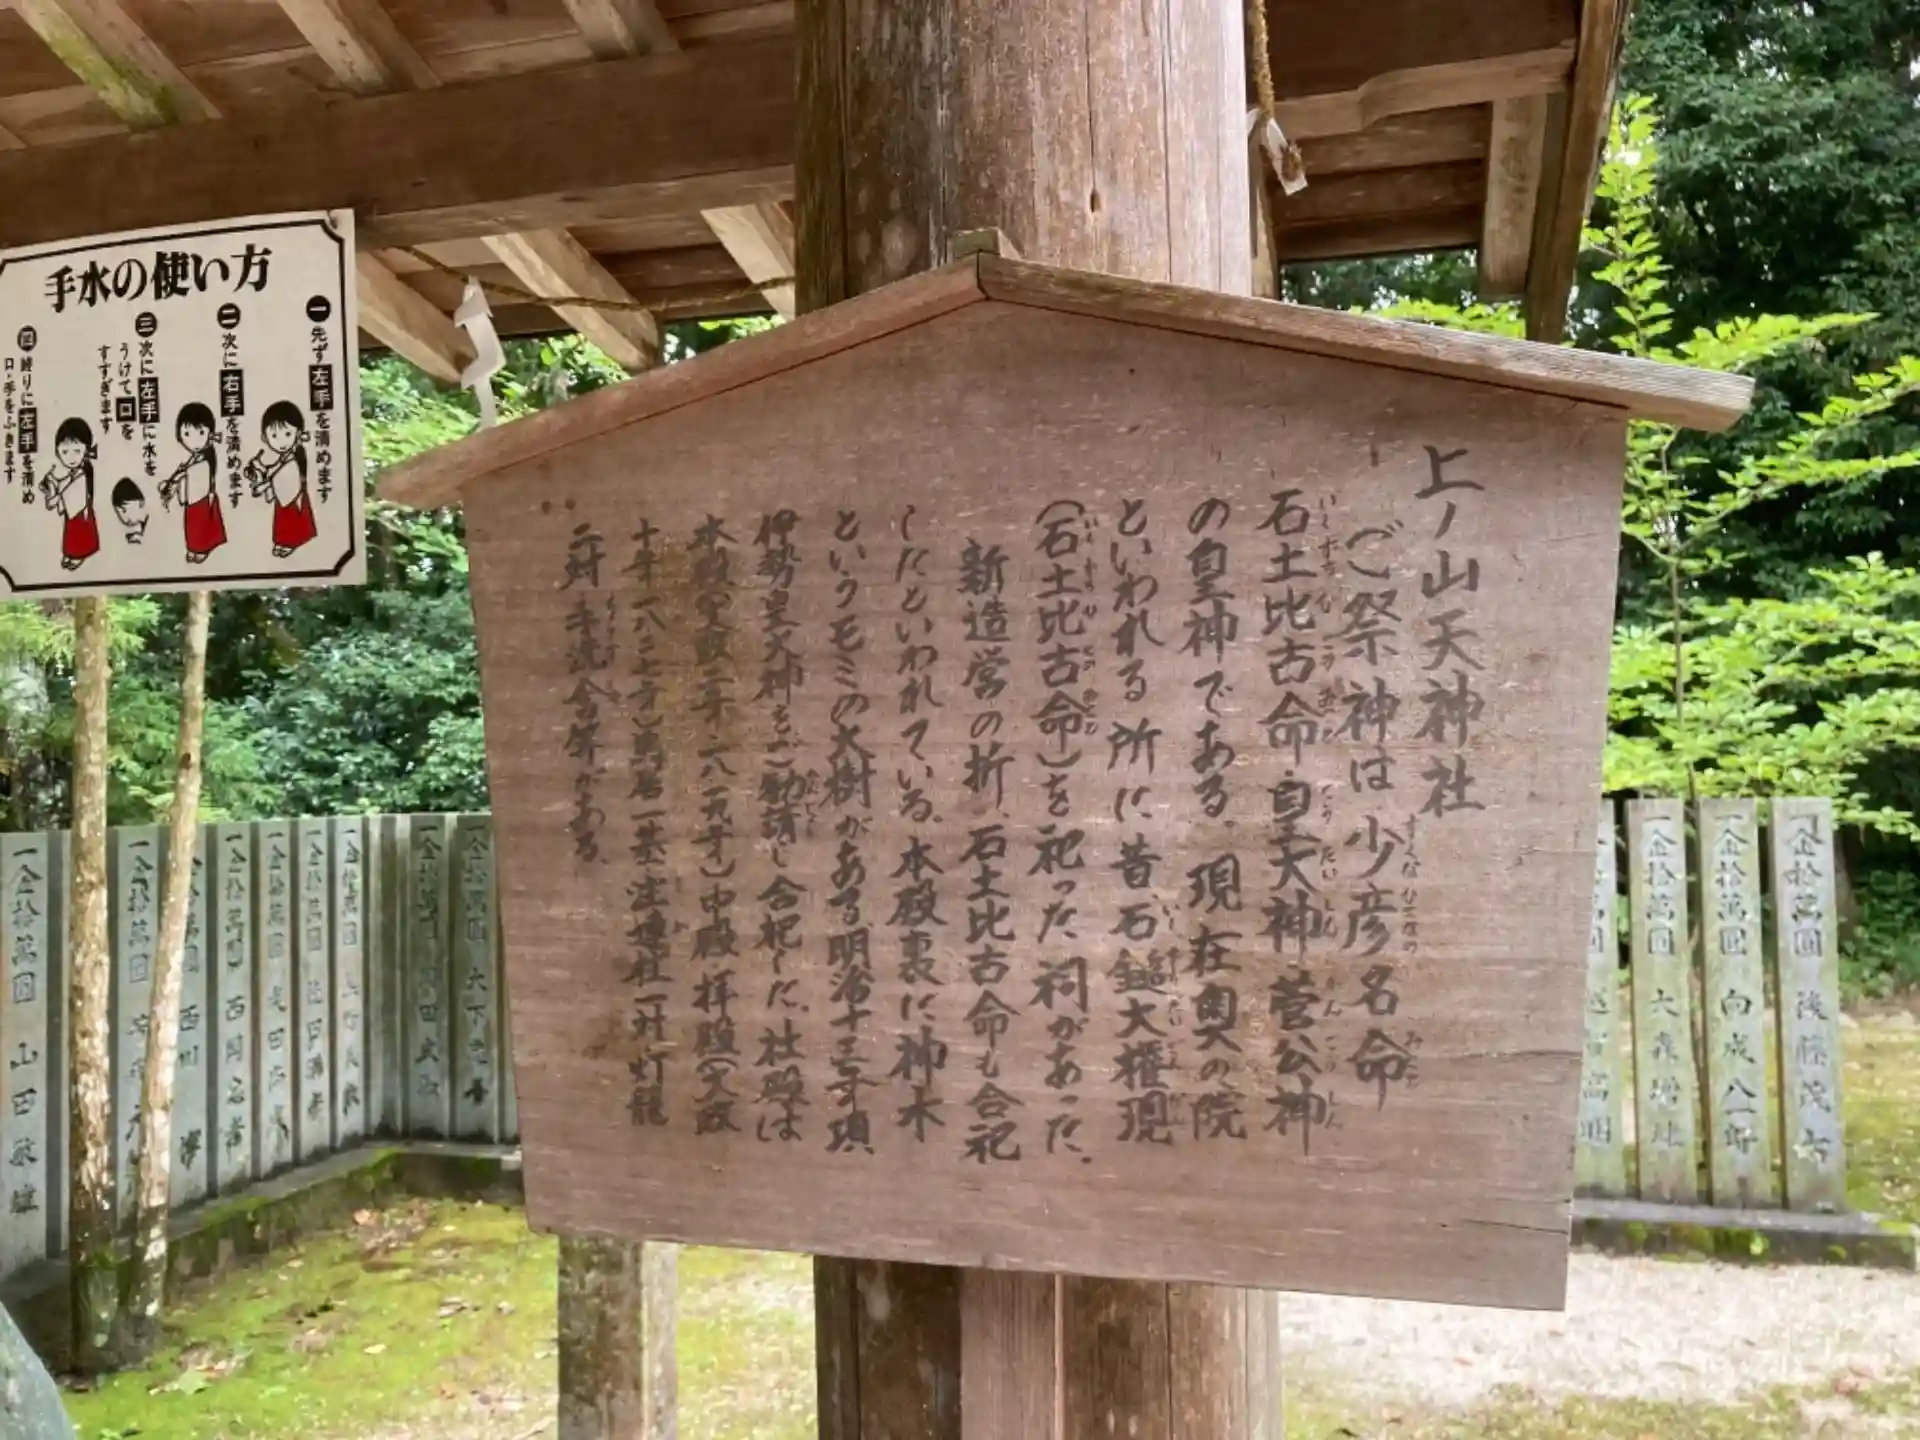 上ノ山天神社
ご祭神は少彦名命
石土比古命・皇大神・菅公神
の皇神である。現在奥の院
といわれる所に昔、石鎚大権現
(石土比古命)を祀った祠があった。
新造営の折、石土比古命も合祀
したといわれている。本殿裏に神木
というモミの大樹がある。明治十三年頃、
伊勢皇大神をご勧請し合祀した。社殿は
本殿(文政二年・一八一九年)中殿、拝殿(文政
十年一八二七年)鳥居一基、注連柱一対、灯籠
二対、手洗舎等がある。
手水の使い方
一 先ず左手を清めます
二 次に右手を清めます
三 次に左手に水を
うけて口を
すすぎます
四 終りに左手を清め
口・手をふきます
一金拾萬圓 後藤茂
一金拾萬圓 向成八一
一金拾萬圓 大森
一金拾萬圓 山田
一金拾萬圓
一金拾萬圓 西川
一金拾萬圓 西岡